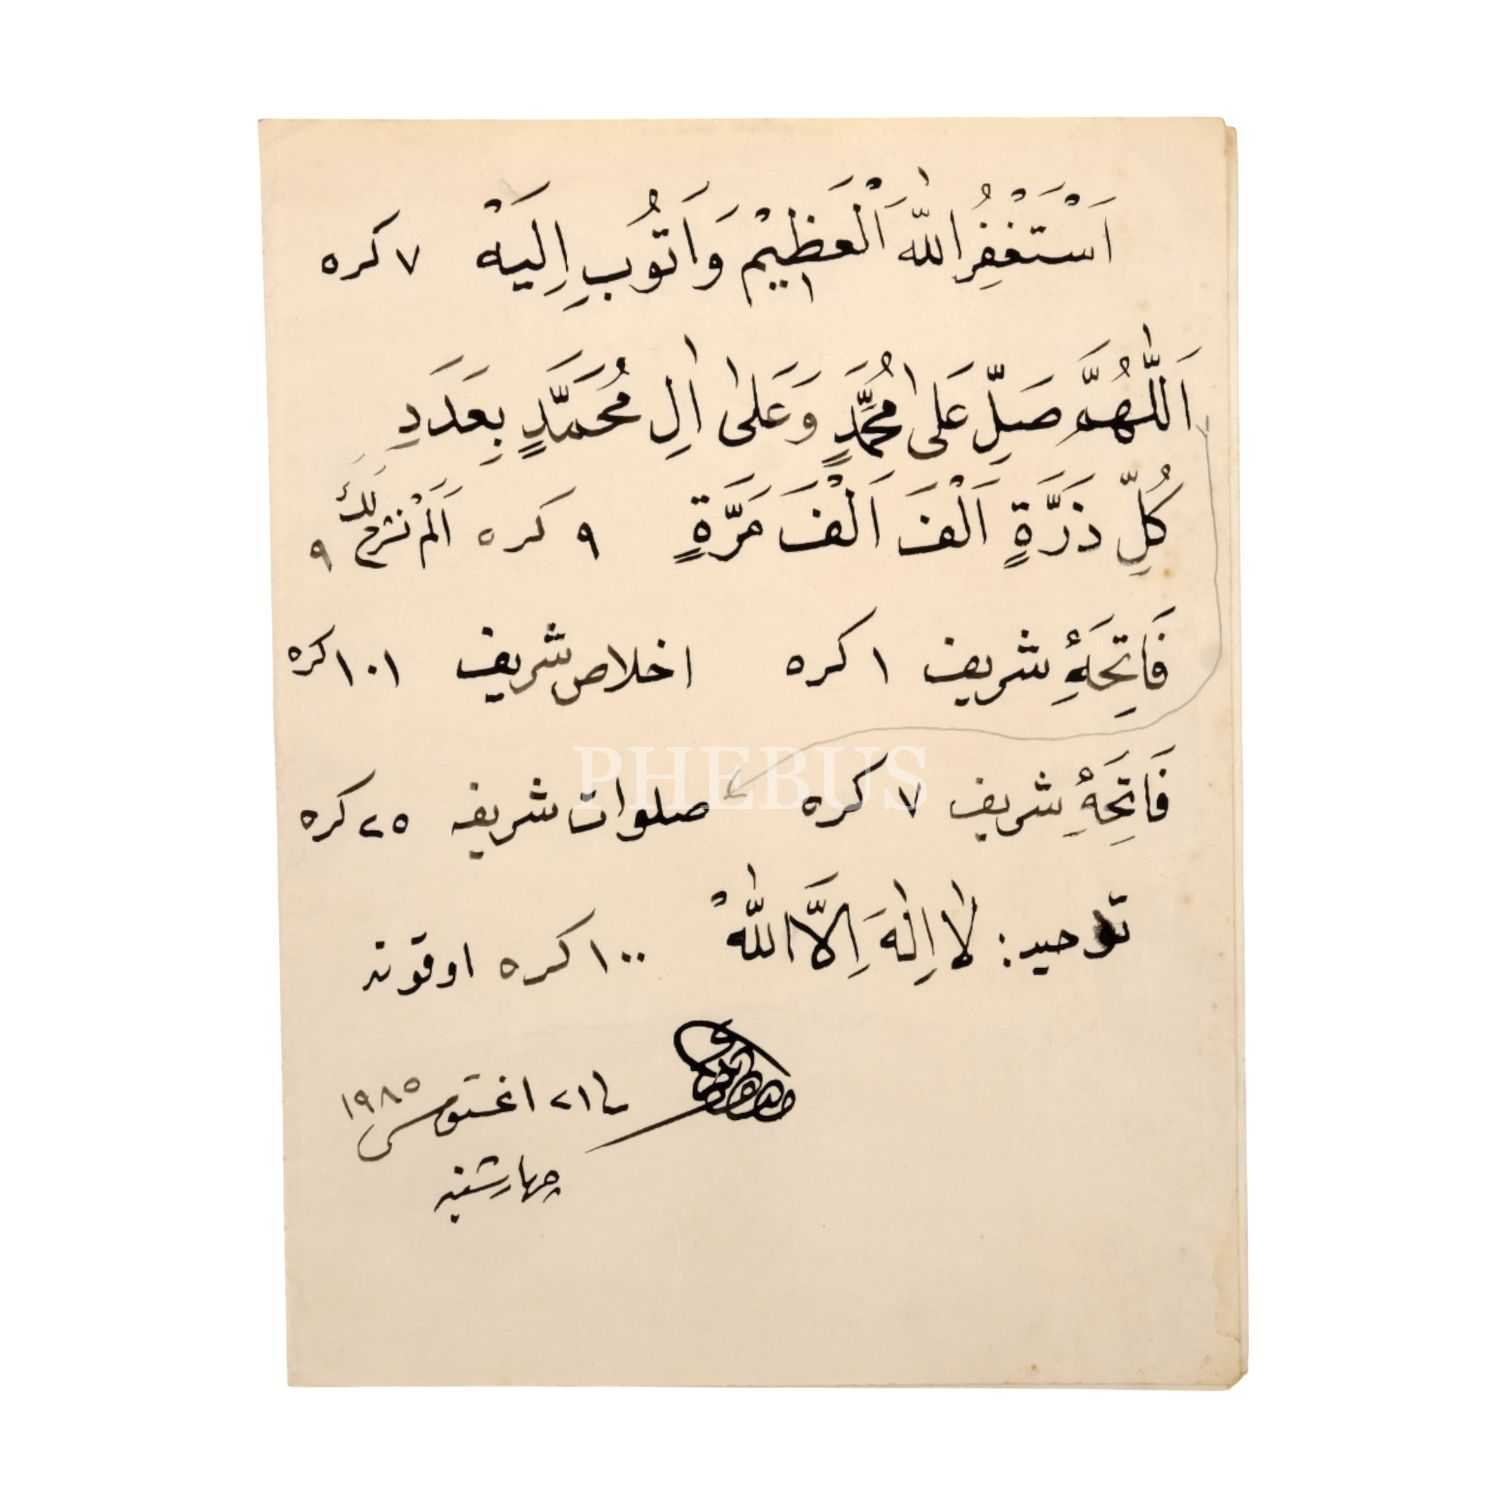 اَسْتَغْفِرُ اللّٰهَ الْعَظِيْمِ وَاَتُوبُ اِلَيَهْ ٧ كره
اَللّٰهُمَّ صَلِّ عَلٰى مُحَمَّدٍ وَعَلٰى اٰلِ مُحَمَّدٍ بِعَدَدِ
كُلِّ ذَرَّةٍ اَلْفَ اَلْفَ مَرَّةٍ ٩ كره اَلَمْ نَشْرَحْ لَكَ ٩
فَاتِحَهٔ شريف ١ كره اخلاص شريف ١٠١ كره
PHEBUS
فَاتِحَهٔ شريف ٧ كره صلوات شريفه ٢٥ كره
توحيد: لَا اِلٰهَ اِلَّا اللّٰهْ ١٠٠ كره اوقونه
٢١ اغستوس ١٩٨٥
چهارشنبه